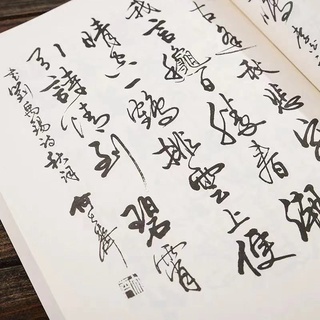 古逢秋悲寂寥
我言穐日勝春
晴空一鶴排雲上便
引詩情到碧霄
書劉禹錫詩秋詞